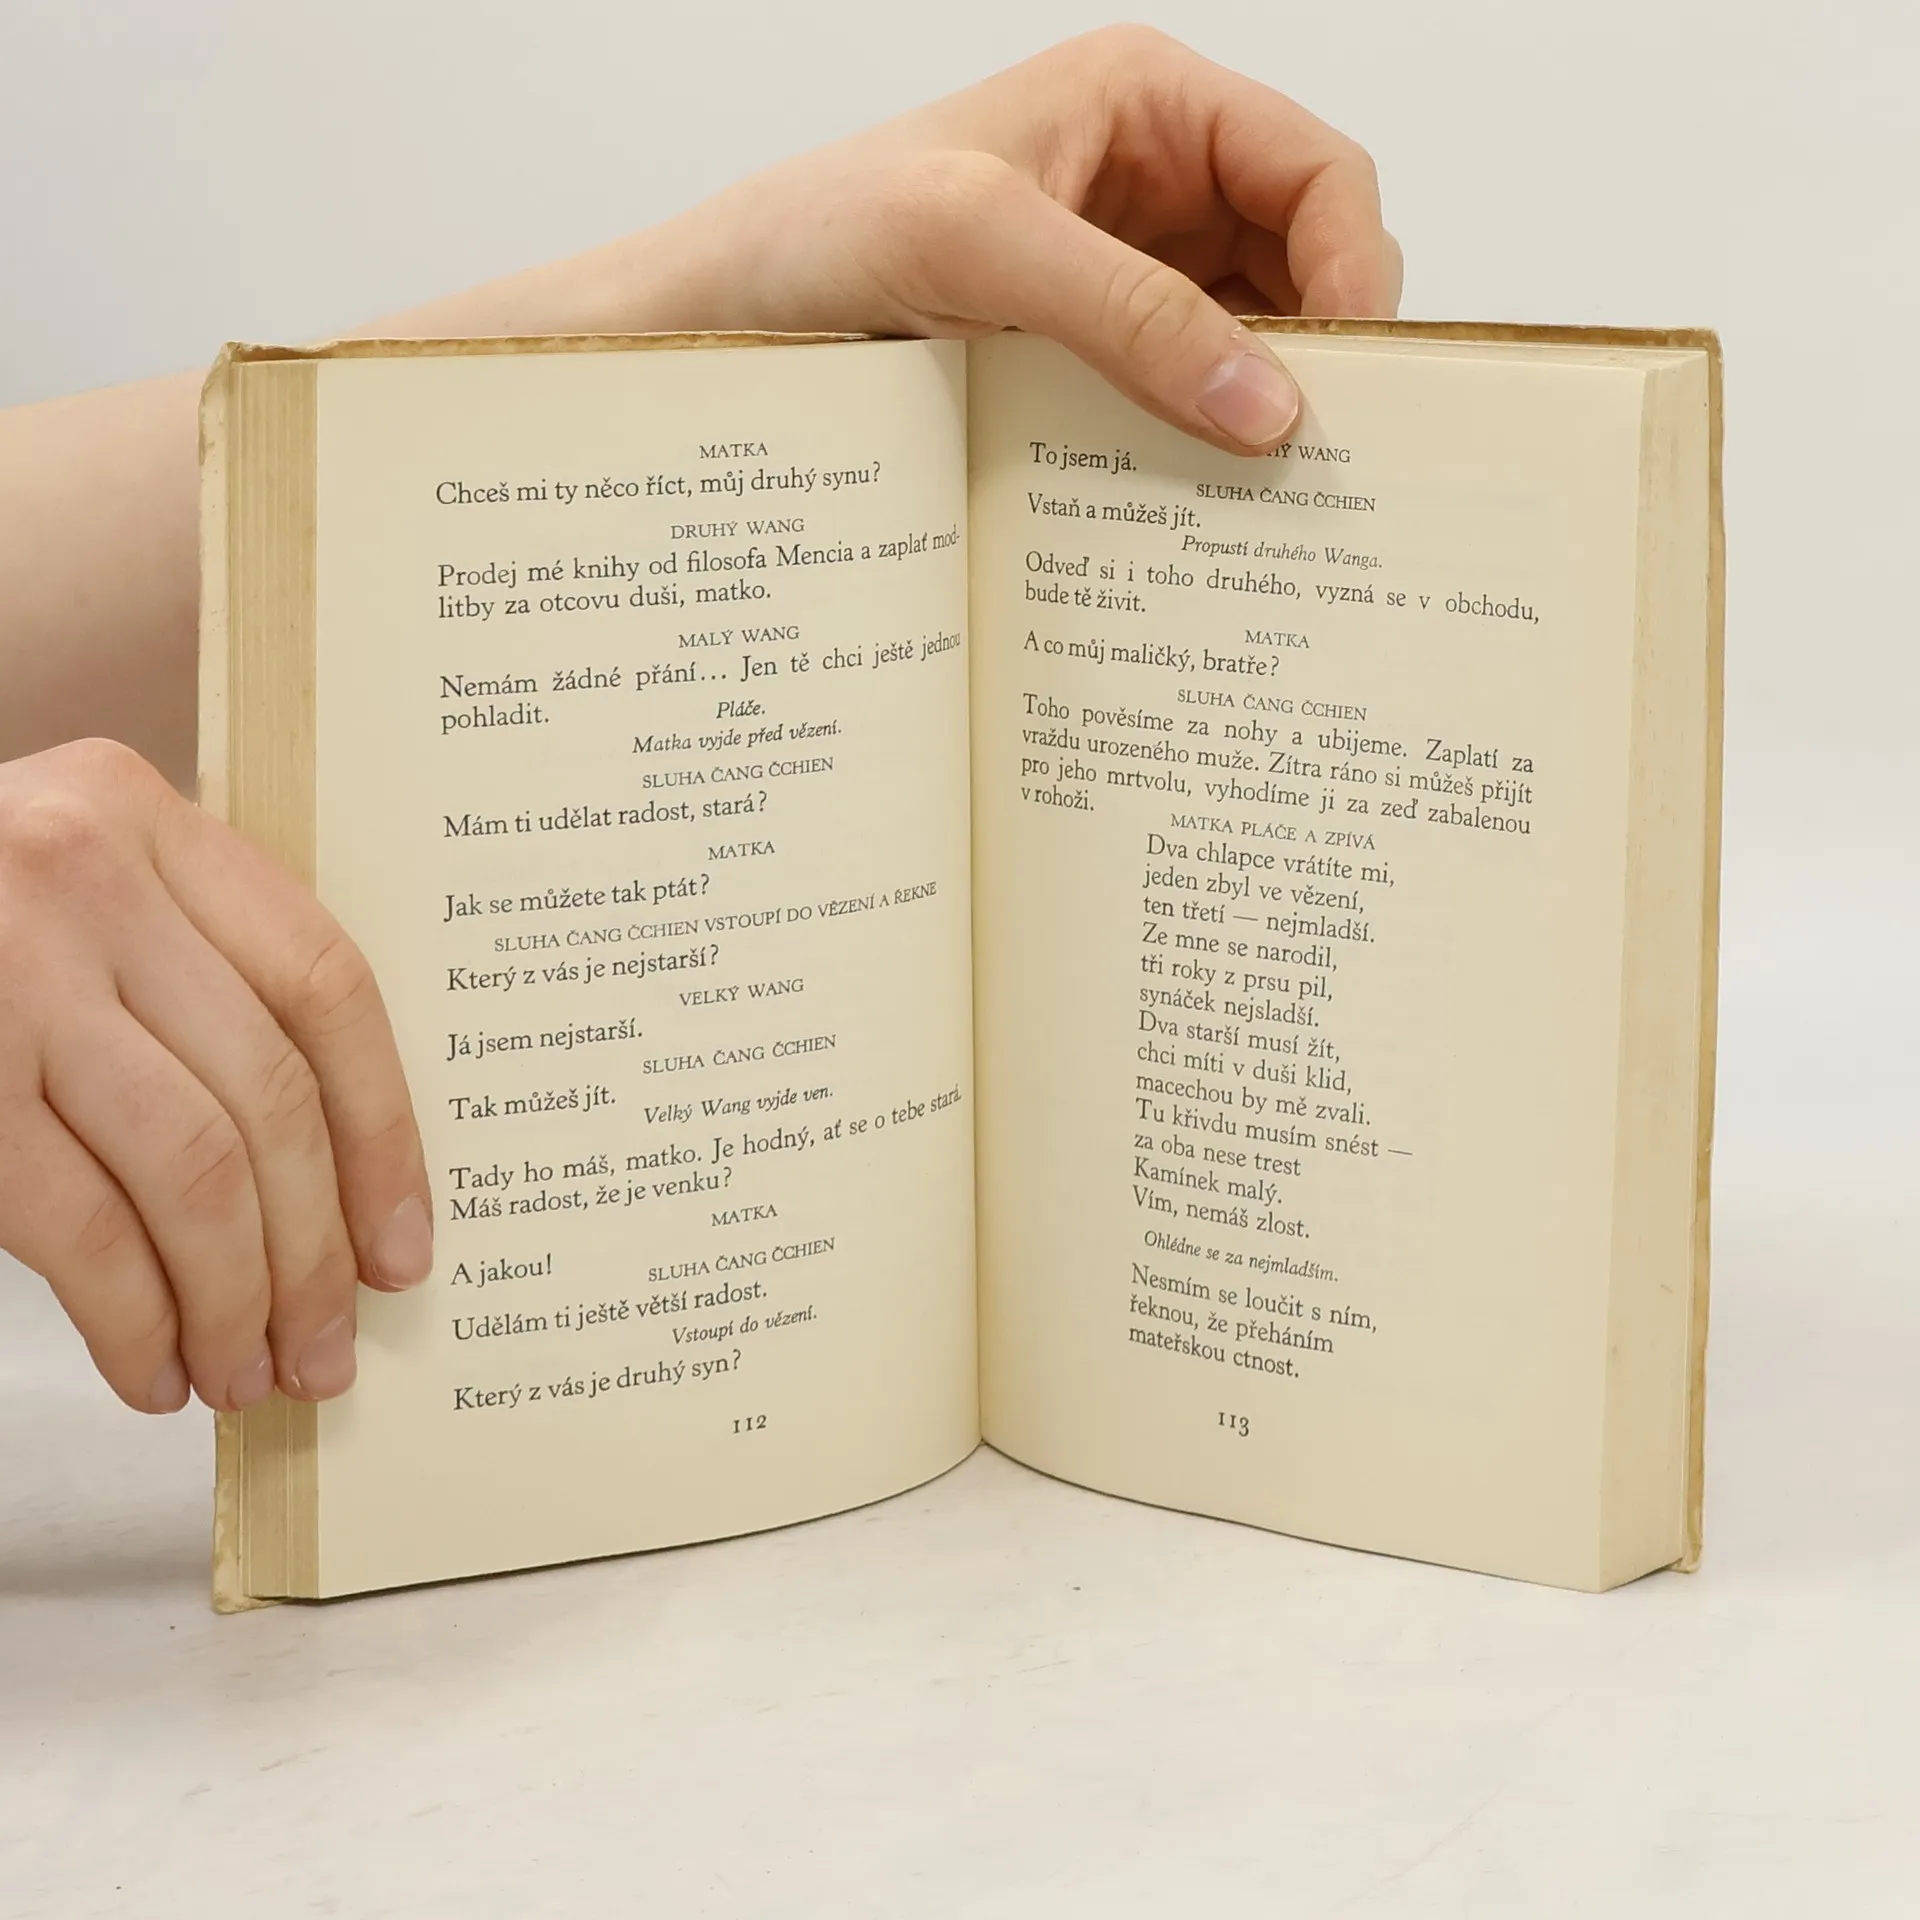 MATKA
Chceš mi ty něco říct, můj druhý synu?
DRUHÝ WANG
Prodej mé knihy od filosofa Mencia a zaplať mod-
litby za otcovu duši, matko.
MALÝ WANG
Nemám žádné přání... Jen tě chci ještě jednou
pohladit.
Pláče.
Matka vyjde před vězení.
SLUHA ČANG ČCHIEN
Mám ti udělat radost, stará?
MATKA
Jak se můžete tak ptát?
SLUHA ČANG ČCHIEN VSTOUPÍ DO VĚZENÍ A ŘEKNE
Který z vás je nejstarší?
VELKÝ WANG
Já jsem nejstarší.
SLUHA ČANG ČCHIEN
Tak můžeš jít.
Velký Wang vyjde ven.
Tady ho máš, matko. Je hodný, ať se o tebe stará.
Máš radost, že je venku?
MATKA
A jakou!
SLUHA ČANG ČCHIEN
Udělám ti ještě větší radost.
Vstoupí do vězení.
Který z vás je druhý syn?
112
WANG
To jsem já.
SLUHA ČANG ČCHIEN
Vstaň a můžeš jít.
Propustí druhého Wanga.
Odveď si i toho druhého, vyzná se v obchodu,
bude tě živit.
MATKA
A co můj maličký, bratře?
SLUHA ČANG ČCHIEN
Toho pověsíme za nohy a ubijeme. Zaplatí za
vraždu urozeného muže. Zítra ráno si můžeš přijít
pro jeho mrtvolu, vyhodíme ji za zeď zabalenou
v rohoži.
MATKA PLÁČE A ZPÍVÁ
Dva chlapce vrátíte mi,
jeden zbyl ve vězení,
ten třetí — nejmladší.
Ze mne se narodil,
tři roky z prsu pil,
synáček nejsladší.
Dva starší musí žít,
chci míti v duši klid,
macechou by mě zvali.
Tu křivdu musím snést —
za oba nese trest
Kamínek malý.
Vím, nemáš zlost.
Ohlédne se za nejmladším.
Nesmím se loučit s ním,
řeknou, že přeháním
mateřskou ctnost.
113